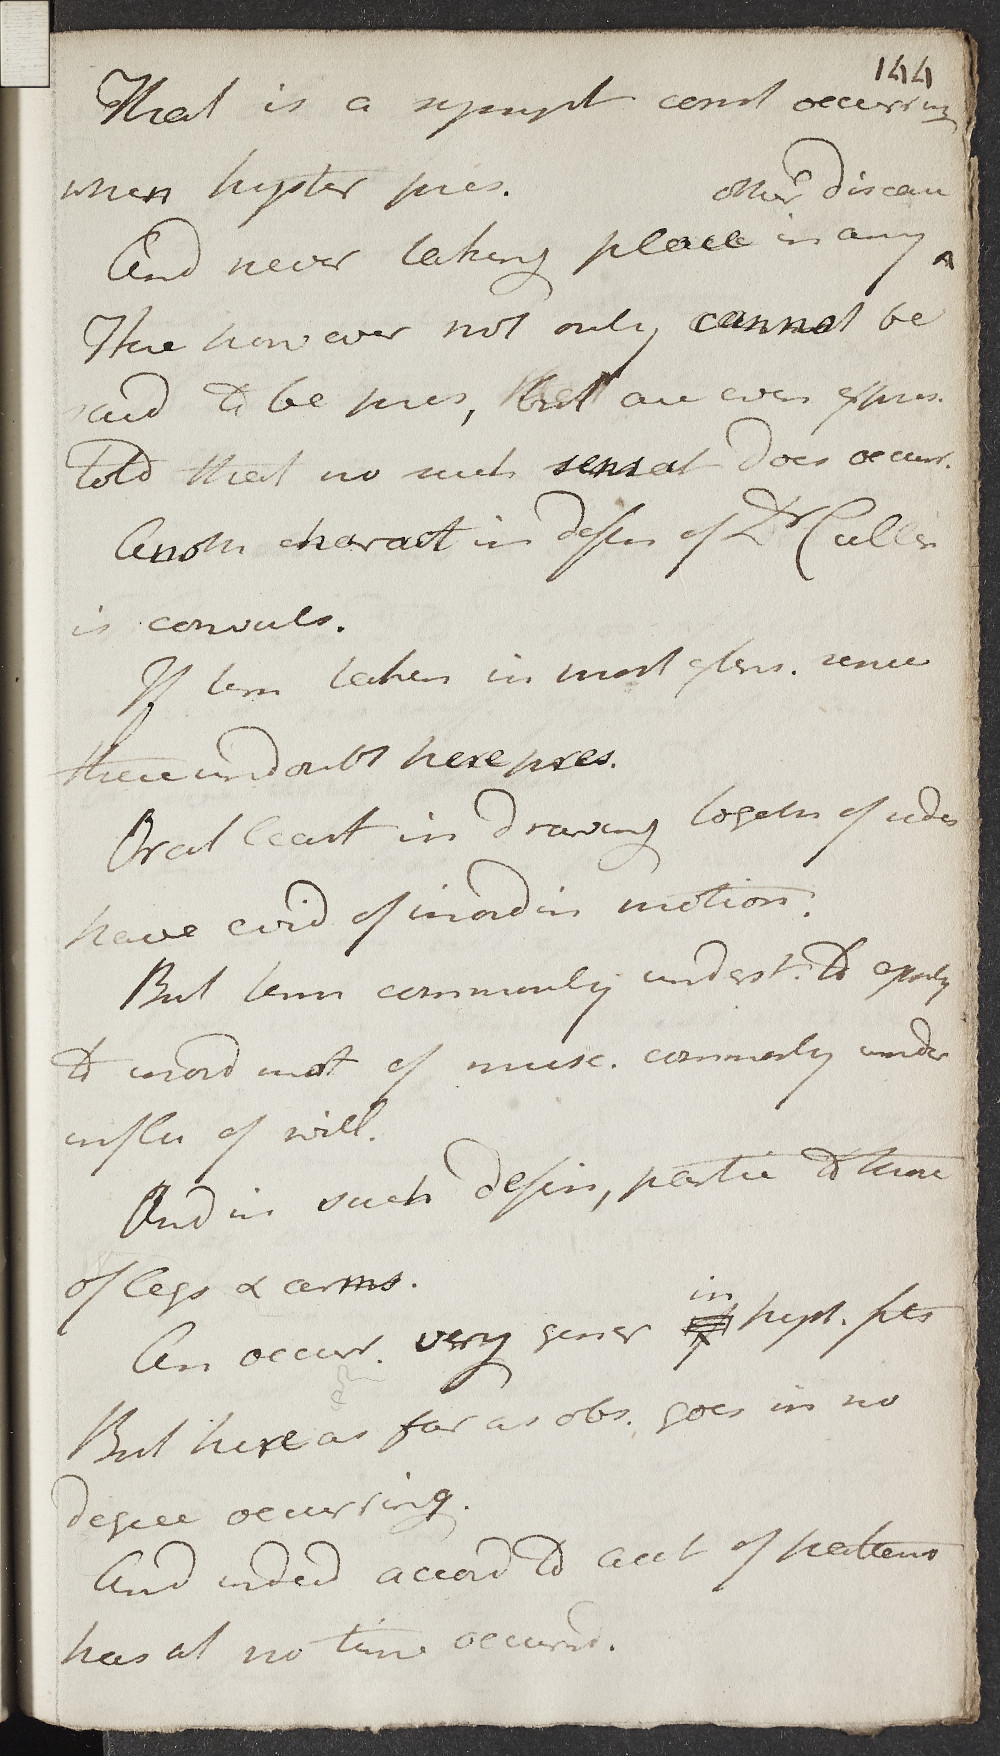 144
That is a sympt const occurring
when hyster pres.
And never taking place in any ^ other diseau
Thae however not only cannot be
said to be pres, but are even expres.
told that no such sensat does occur.
Anoth charact in defin of Dr Cullen
is convuls.
If term taken in most extens. sense
these undoubt here pres.
Or at least in drawing togeth of
have evid of inordin motion.
But term commonly underst. to apply
to inord mot of musc. commonly under
influ of will.
And in such defin, partic to those
of legs & arms.
An occurr. very gener in hyst. pts
But here as far as obs. goes in no
degree occurring.
And indeed accord to acct of patient
has at no time occurred.